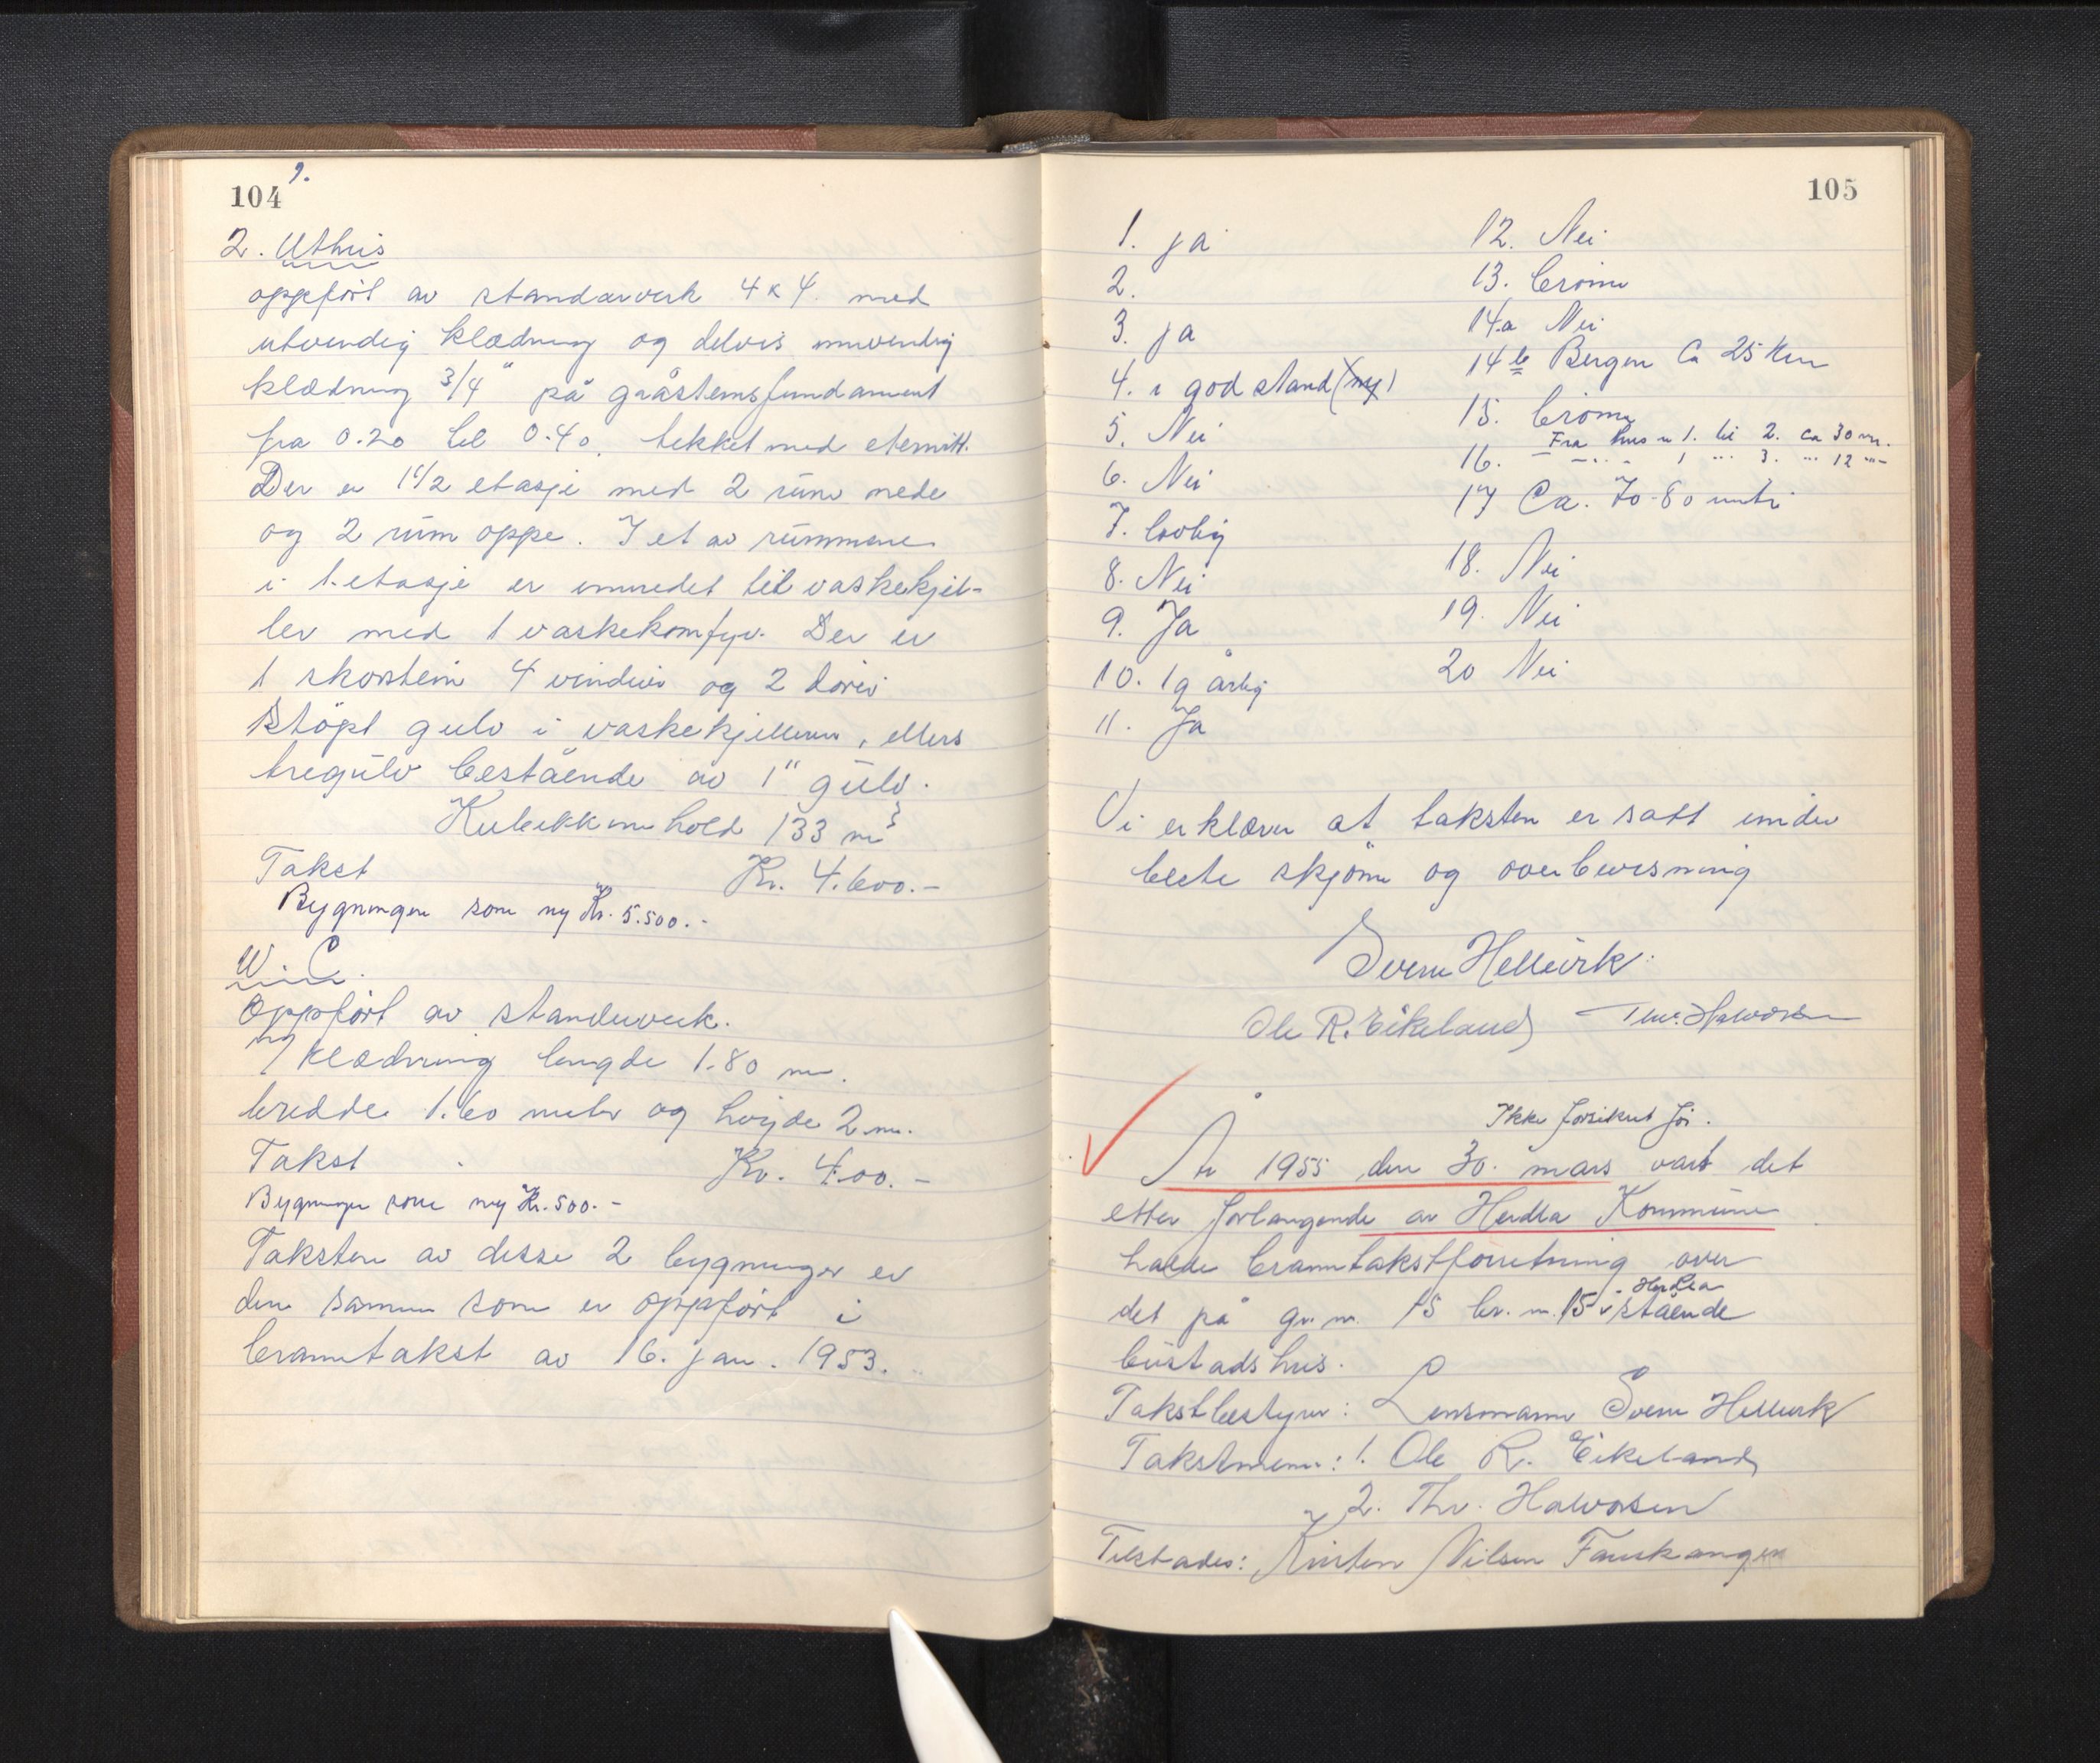 104
2. Uthus
oppfört av standarverk 4 x 4. med
utvendig klædning og delvis innvendig
klædning 3/4" på gråstensfundament
fra 0.20 til 0.40, tekket med eternitt.
Der er 1 1/2 etasje med 2 rum nede
og 2 rum oppe. I et av rummene
i 1. etasje er innredet til vaskekjel-
ler med 1 vaskekomfyr. Der er
1 skorstein 4 vinduer og 2 dører
Støpt gulv i vaskekjelleren, ellers
tregulv bestående av 1" gulv.
Kubikkinnhold 133 m3
Takst Kr. 4.600.-
Bygningen som ny Kr. 5.500.-
W.C.
Oppfört av standerverk.
og klædning lengde 1.80 m.
bredde 1.60 meter og höyde 2 m.
Takst Kr. 400.-
Bygningen som ny Kr. 500.-
Taksten av disse 2 bygninger er
den samme som er oppfört i
branntakst av 16. jan. 1953.
105
1. ja
2.
3. ja
4. i god stand (ny)
5. Nei
6. Nei
7. lovlig
8. Nei
9. Ja
10. 1 g årlig
11. Ja
12. Nei
13. Brönn
14.a Nei
14 b Bergen Ca 25 km
15. Brönn
16. Fra hus n 1. til 2. ca 30 m.
1 " 3. " 12 "
17 Ca. 70-80 meter
18. Nei
19. Nei
20 Nei
Vi erklærer at taksten er satt under
beste skjönn og overbevisning
Sverre Hellevik
Ole R. Eikeland Thv. Halvorsen
Ikke forsikret för.
År 1955 den 30. mars vart det
etter forlangende av Herdla Kommune
halde branntakstforretning over
det på gr. nr. 15 br. nr. 15 i Herdla stående
bustadshus.
Takstbestyrer: Lensmann Sverre Hellevik
Takstmenn: 1. Ole R. Eikeland
2. Thv. Halvorsen
Tilstades: Kirsten Nilsen Fauskanger